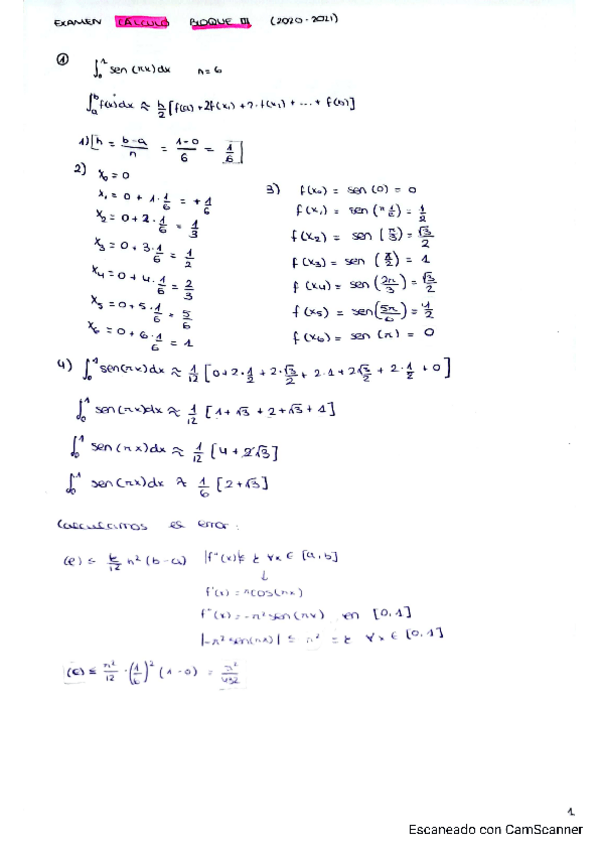 EXAMEN CÁLCULO BLOQUE III (2020-2021)
① ∫₀¹ sen(πx)dx n=6
∫ₐᵇ f(x)dx ≈ h/2 [f(a)+2f(x₁)+2·f(x₂)+...+f(b)]
1) [h = b-a/n = 1-0/6 = 1/6]
2) x₀=0
x₁=0+1·1/6=+1/6
x₂=0+2·1/6=1/3
x₃=0+3·1/6=1/2
x₄=0+4·1/6=2/3
x₅=0+5·1/6=5/6
x₆=0+6·1/6=1
3) f(x₀) = sen(0) = 0
f(x₁) = sen(π 1/6) = 1/2
f(x₂) = sen(π/3) = √3/2
f(x₃) = sen(π/2) = 1
f(x₄) = sen(2π/3) = √3/2
f(x₅) = sen(5π/6) = 1/2
f(x₆) = sen(π) = 0
4) ∫₀¹ sen(πx)dx ≈ 1/12 [0+2·1/2+2·√3/2+2·1+2√3/2+2·1/2+0]
∫₀¹ sen(πx)dx ≈ 1/12 [1+√3+2+√3+1]
∫₀¹ sen(πx)dx ≈ 1/12 [4+2√3]
∫₀¹ sen(πx)dx ≈ 1/6 [2+√3]
Calculamos el error:
|e| ≤ k/12 h²(b-a) |f''(x)| ≤ k ∀x ∈ [a,b]
↓
f'(x) = πcos(πx)
f''(x) = -π²sen(πx) en [0,1]
|-π²sen(πx)| ≤ π² = k ∀x ∈ [0,1]
|e| ≤ π²/12 · (1/6)² (1-0) = π²/432
1
Escaneado con CamScanner